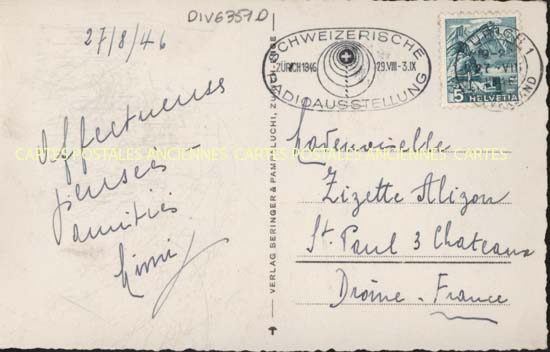 DIV6351D
27/8/46
Affectueuses
pensées -
amitiés
Mimi
SCHWEIZERISCHE
ZÜRICH 1946 29.VIII-3.IX
RADIOAUSSTELLUNG
5 HELVETIA
Mademoiselle
Zizette Alizon
St. Paul 3 Chateaux
Drôme - France
CARTES POSTALES ANCIENNES CARTES POSTALES ANCIENNES CARTES
VERLAG BERINGER & PAMPALUCHI, ZÜRICH